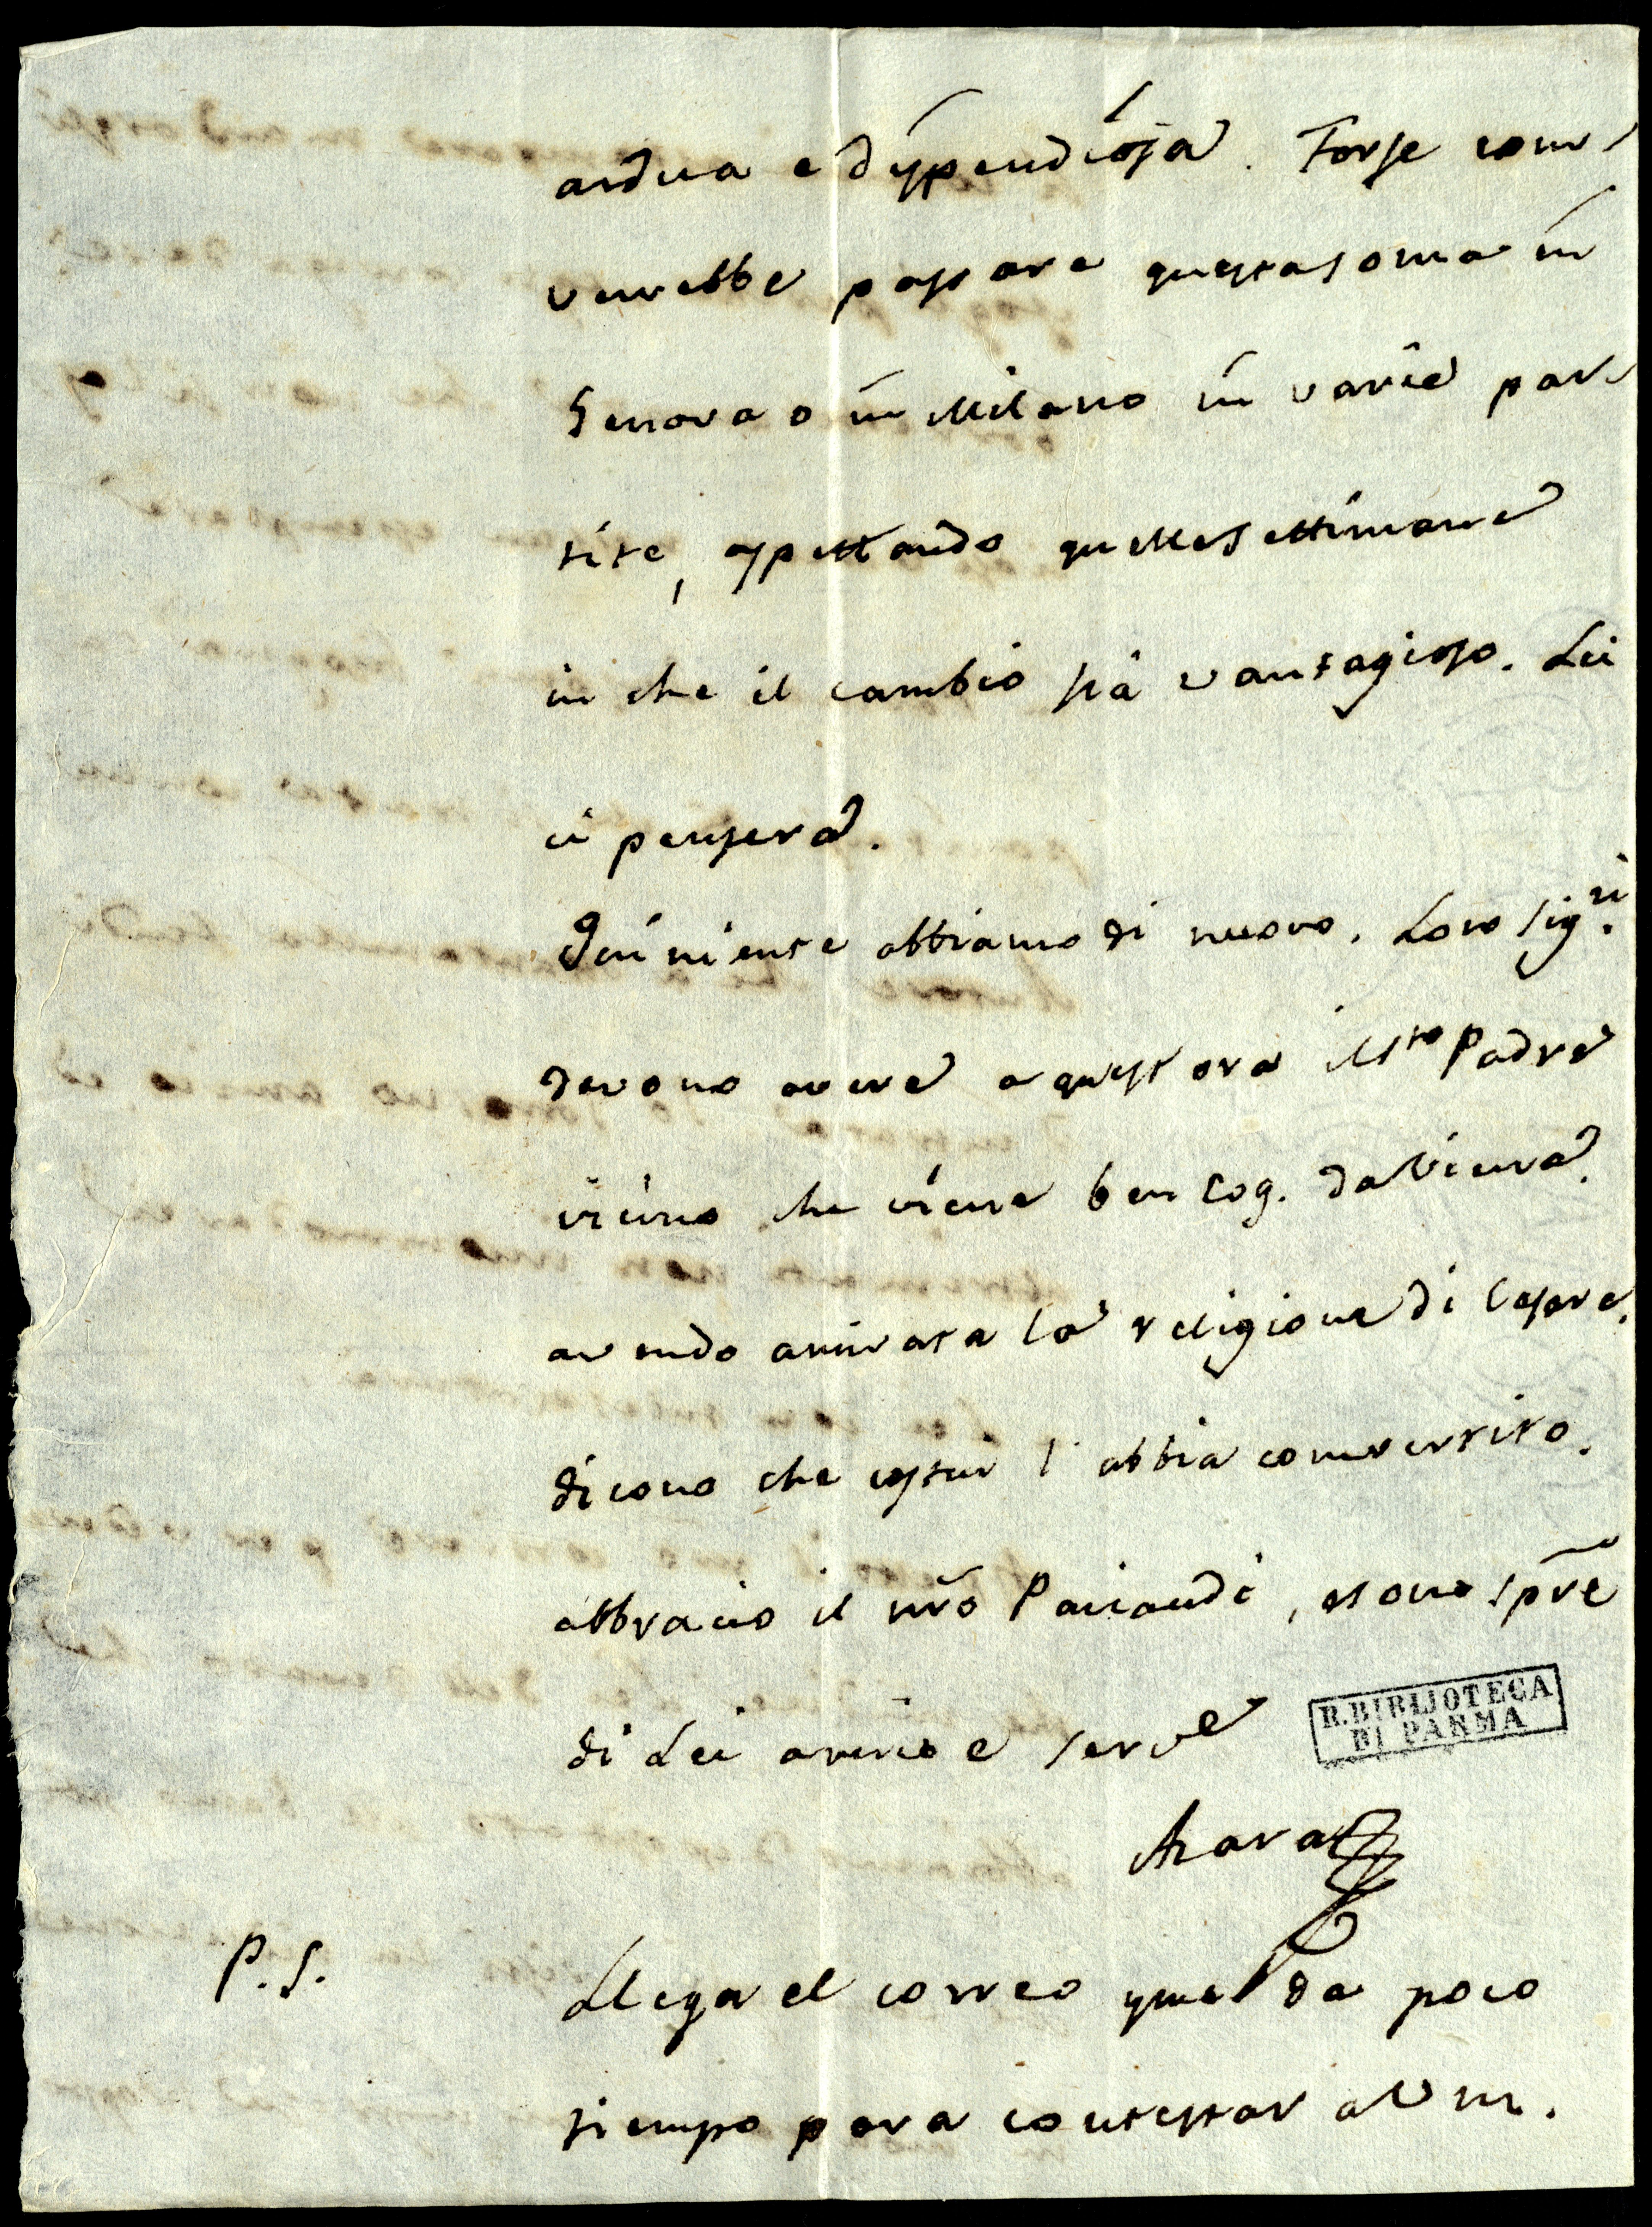 ardua e dispendiosa. Forse con-
verrebbe passare questa soma in
Genova o in Milano in varie par-
tite, aspettando quelle settimane
in che il cambio sia vantagioso. Lei
ci penserà.
Qui niente abbiamo di nuovo. Loro Sig.ri
devono avere a quest ora il Sto Padre
vicino che viene ben cog. da Viena.
avendo arrivata la religione di Cesare,
dicono che costui l'abbia convertito.
abbracio il nro Paciaudi, e sono spre
di Lei amico e serve
Azara
R. BIBLIOTECA
DI PARMA
P.S. Llega el correo que da poco
tiempo para contestar a Vm.